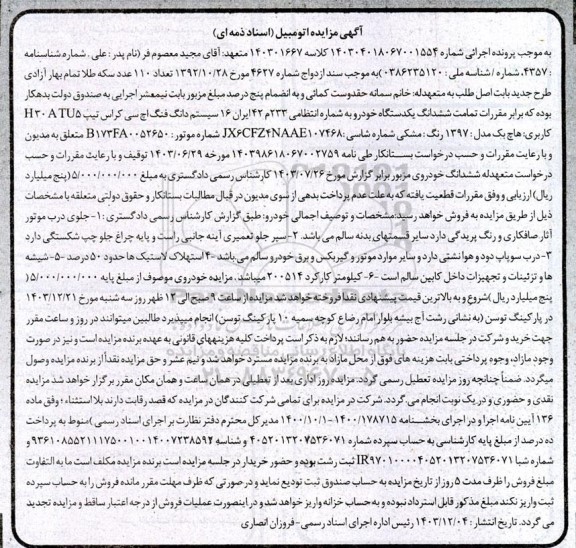 آگهی مزایده اتومبیل (اسناد ذمه ای)
به موجب پرونده اجرائی شماره ۱۴۰۳۰۴۰۱۸۰۶۷۰۰۱۵۵۴ کلاسه ۱۴۰۳۰۱۶۶۷ متعهد: آقای مجید معصوم فر (نام پدر: علی . شماره شناسنامه
: ۴۳۵۷، شماره / شناسه ملی : ۰۳۸۶۲۳۵۱۲۰) به موجب سند ازدواج شماره ۴۶۲۷ مورخ ۱۳۹۲/۱۰/۲۸ تعداد ۱۱۰ عدد سکه طلا تمام بهار آزادی
طرح جدید بابت اصل طلب به متعهدله: خانم سمانه حقدوست کمائی و به انضمام پنج درصد مبلغ مزبور بابت نیمعشر اجرایی به صندوق دولت بدهکار
بوده که برابر مقررات تمامت ششدانگ یکدستگاه خودرو به شماره انتظامی ۲۳۳م۴۲ ایران ۱۶ سیستم دانگ فنگ اچ سی کراس تیپ H30ATU5
کاربری: هاچ بک مدل : ۱۳۹۷ رنگ : مشکی شماره شاسی: ۱۰۷۴۶۸JX۶CFZ۴NAAE شماره موتور : B۱۷۳FA۰۰۵۲۶۵۰ متعلق به مدیون
و با رعایت مقررات و حسب درخواست بستانکار طی نامه ۱۴۰۳۹۸۶۱۸۰۶۷۰۰۲۷۵۹ مورخه ۱۴۰۳/۰۶/۲۹ توقیف و با رعایت مقررات و حسب
درخواست متعهدله ششدانگ خودروی مزبور برابر گزارش مورخ ۱۴۰۳/۰۷/۲۶ کارشناس رسمی دادگستری به مبلغ ۵/۰۰۰/۰۰۰/۰۰۰ (پنج میلیارد
ریال) ارزیابی و وفق مقررات قطعیت یافته که به علت عدم پرداخت بدهی از سوی مدیون در قبال مطالبات بستانکار و حقوق دولتی متعلقه با مشخصات
ذیل از طریق مزایده به فروش خواهد رسید: مشخصات و توصیف اجمالی خودرو: طبق گزارش کارشناس رسمی دادگستری : ۱- جلوی درب موتور
آثار صافکاری و رنگ پریدگی دارد سایر قسمتهای بدنه سالم می باشد. ۲- سپر جلو تعمیری آینه جانبی راست و پایه چراغ جلو چپ شکستگی دارد
۳- درب سوپاپ دود و هوا نشتی دارد و سایر موارد موتور و گیربکس و برق خودرو سالم می باشد ۴- استهلاک لاستیک ها حدود ۵۰ درصد ۵- شیشه
ها و تزئینات و تجهیزات داخل کابین سالم است ۶- کیلومتر کارکرد ۲۰۰۵۱۴ میباشد. مزایده خودروی موصوف از مبلغ پایه ۵/۰۰۰/۰۰۰/۰۰۰ (
پنج میلیارد ریال) شروع و به بالاترین قیمت پیشنهادی نقدا فروخته خواهد شد مزایده از ساعت ۹ صبح الی ۱۲ ظهر روز سه شنبه مورخ ۱۴۰۳/۱۲/۲۱
در پارکینگ توسن (به نشانی رشت آج بیشه بلوار امام رضا ع کوچه سمیه ۱۰ پارکینگ توسن) انجام میپذیرد طالبین میتوانند در روز و ساعت مقرر
جهت خرید و شرکت در جلسه مزایده حضور به هم رسانند؛ لازم به ذکر است پرداخت کلیه هزینههای قانونی به عهده برنده مزایده است و نیز در صورت
وجود مازاد، وجوه پرداختی بابت هزینه های فوق از محل مازاد به برنده مزایده مسترد خواهد شد و نیم عشر و حق مزایده نقداً از برنده مزایده وصول
میگردد. ضمناً چنانچه روز مزایده تعطیل رسمی گردد. مزایده روز اداری بعد از تعطیلی در همان ساعت و همان مکان مقرر برگزار خواهد شد مزایده
نقدی و حضوری و در یک نوبت انجام می گردد. شرکت در مزایده برای تمامی شرکت کنندگان در مزایده که قصد رقابت دارند بلا استثناء؛ وفق ماده
۱۳۶ آیین نامه اجرا و در اجرای بخشنامه ۱۴۰۰/۱۷۸۷۱۵-۱۴۰۰/۱۰/۱ مدیر کل محترم دفتر نظارت بر اجرای اسناد رسمی) منوط به پرداخت
ده درصد از مبلغ پایه کارشناسی به حساب سپرده شماره ۴۰۵۲۰۱۳۲۰۷۵۳۶۰۷۱ و شناسه ۹۳۶۱۰۸۵۵۲۱۱۱۷۵۰۰۱۰۰۱۴۰۰۷۲۳۸۵۹۴ و
شماره شبا IR۹۷۰۱۰۰۰۰۴۰۵۲۰۱۳۲۰۷۵۳۶۰۷۱ ثبت رشت بوده و حضور خریدار در جلسه مزایده است برنده مزایده مکلف است ما به التفاوت
مبلغ فروش را ظرف مدت ۵ روز از تاریخ مزایده به حساب صندوق ثبت تودیع نماید و در صورتی که ظرف مهلت مقرر مانده فروش را به حساب سپرده
ثبت واریز نکند مبلغ مذکور قابل استرداد نبوده و به حساب خزانه واریز خواهد شد و در اینصورت عملیات فروش از درجه اعتبار ساقط و مزایده تجدید
می گردد. تاریخ انتشار : ۱۴۰۳/۱۲/۰۴ رئیس اداره اجرای اسناد رسمی - فروزان انصاری